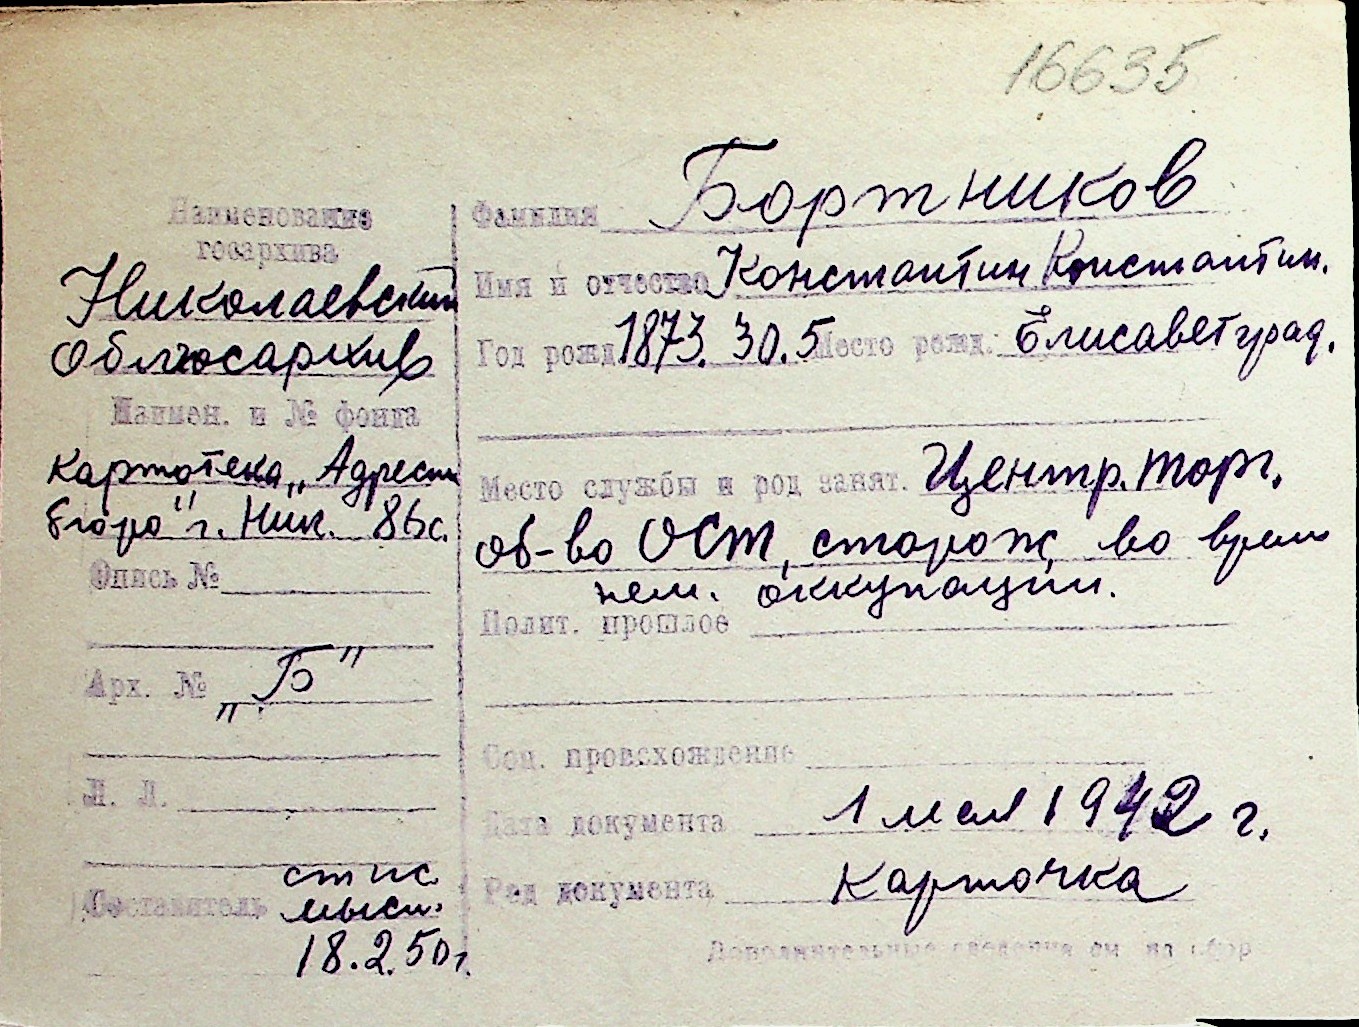 16635
Наименование
госархива
Николаевский
Облгосархив
Наимен. и № фонда
Картотека „Адресн
бюро" г. Ник. 86с.
Опись №
Арх. № „Б"
Л. Л.
Составитель
18.2.50г.
Фамилия Бортников
Имя и отчество Константин Константин.
Год рожд 1873. 30.5 Место рожд. Елисаветград.
Место службы и род занят. Центр. торг.
об-во ОСТ, сторож во время
нем. оккупации.
Полит. прошлое
Соц. происхождение
Дата документа 1 мая 1942 г.
Род документа Карточка
Дополнительные сведения см на обор